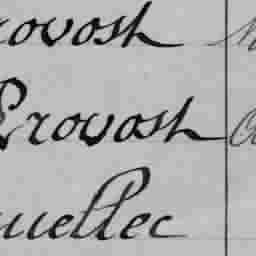 rovost
Provost
uellec